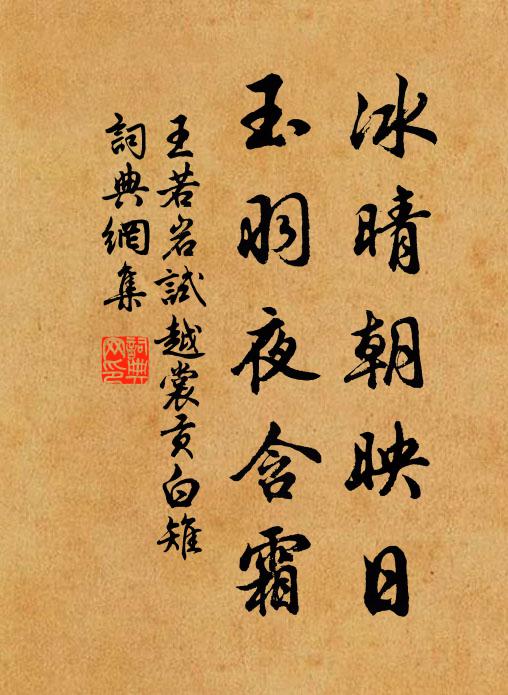 冰晴朝映日
玉羽夜含霜
王若岩試越裳貢白雉
詞典網集
詞典網印